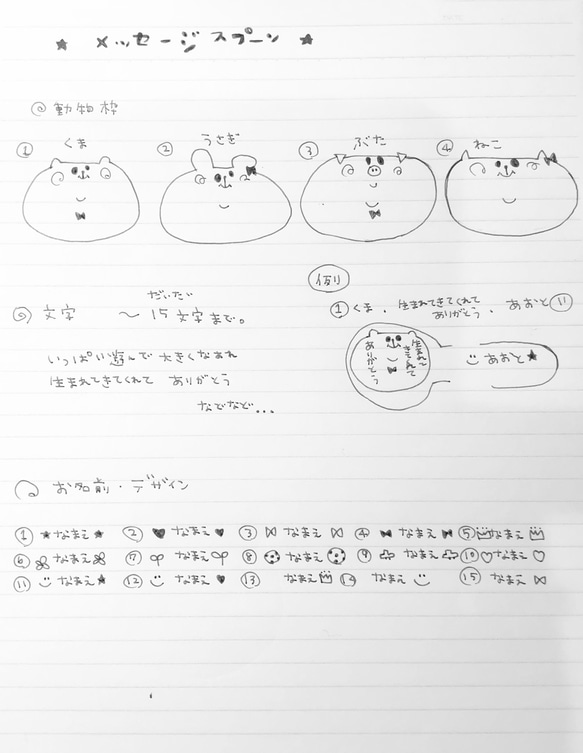 ★ メッセージスプーン ★
◎ 動物枠
① くま ② うさぎ ③ ぶた ④ ねこ
◎ 文字 〜 だいたい 15文字まで。
いっぱい遊んで大きくなあれ
生まれてきてくれて ありがとう
などなど...
例
① くま . 生まれてきてくれて ありがとう . あおと ⑪
生まれてきてくれて
ありがとう
あおと★
◎ お名前・デザイン
① ★なまえ★ ② ♥なまえ♥ ③ なまえ ④ なまえ ⑤ なまえ
⑥ なまえ ⑦ なまえ ⑧ なまえ ⑨ なまえ ⑩ ♡なまえ♡
⑪ なまえ★ ⑫ なまえ♥ ⑬ なまえ ⑭ なまえ ⑮ なまえ